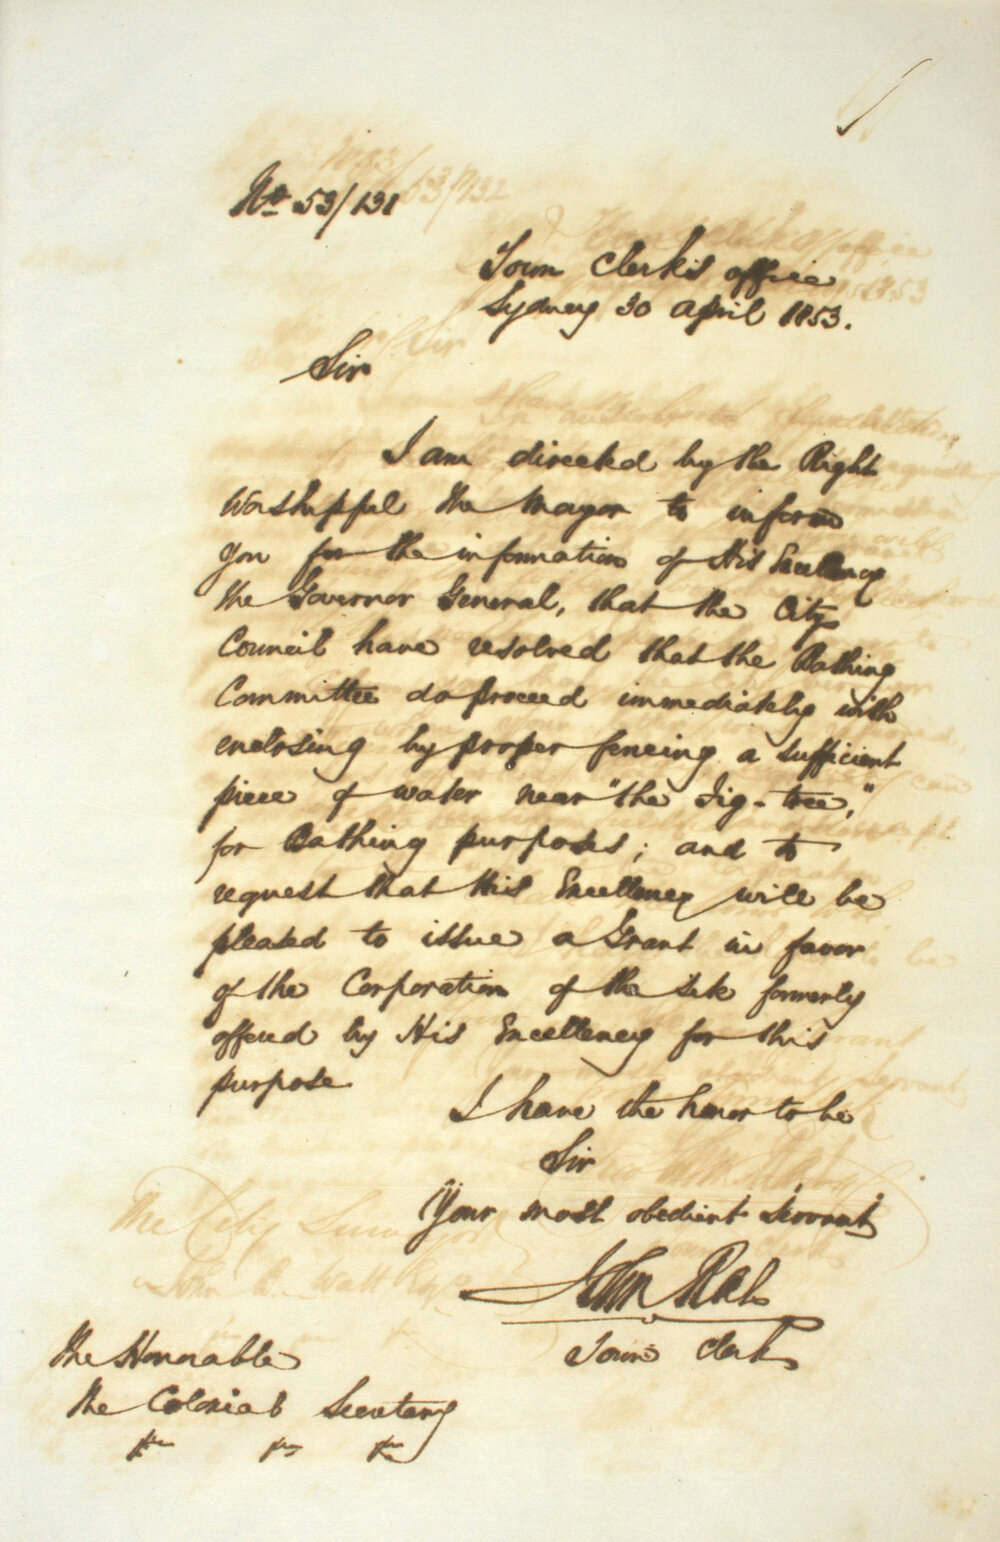 No. 53/131
Town Clerk's office
Sydney 30 April 1853.
Sir
I am directed by the Right
Worshipful the Mayor to inform
you for the information of His Excellency
the Governor General, that the City
Council have resolved that the Bathing
Committee do proceed immediately with
enclosing by proper fencing a sufficient
piece of water near "the Fig-tree,"
for Bathing purposes; and to
request that His Excellency will be
pleased to issue a Grant in favor
of the Corporation of the site formerly
offered by His Excellency for this
purpose.
I have the honor to be
Sir
Your most obedient Servant
John Rae
Town Clerk
The Honorable
The Colonial Secretary